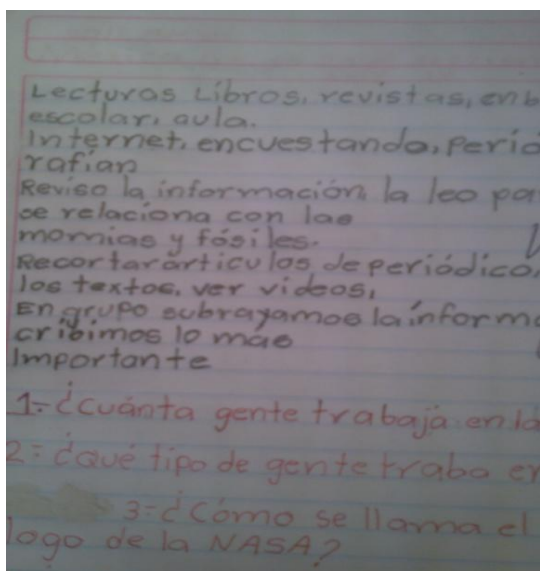 Lecturas Libros, revistas, en b
escolar, aula.
Internet, encuestando, Perio
rafian
Reviso la información, la leo pa
se relaciona con las
momias y fósiles.
Recortar artículos de periódico,
los textos, ver videos,
En grupo subrayamos la inform
cribimos lo mas
Importante
1-¿cuánta gente trabaja en la
2-¿Qué tipo de gente traba en
3-¿Cómo se llama el
logo de la NASA?